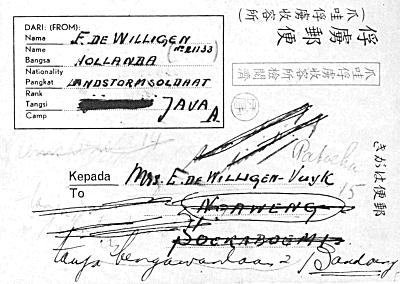 DARI: (FROM):
Name F. DE WILLIGEN
Name (No 21133)
Bangsa HOLLANDA
Nationality
Pangkat LANDSTORMSOLDAAT
Rank
Tangsi JAVA
Camp A.
俘虜郵便
(爪哇俘虜收容所)
爪哇俘虜收容所檢閲濟
きがは便郵
15
Kepada Mrs. E. DE WILLIGEN-VUYK
To
NGAWENG
SOEKABOEMI
Bengawanlaan 2 Bandoeng